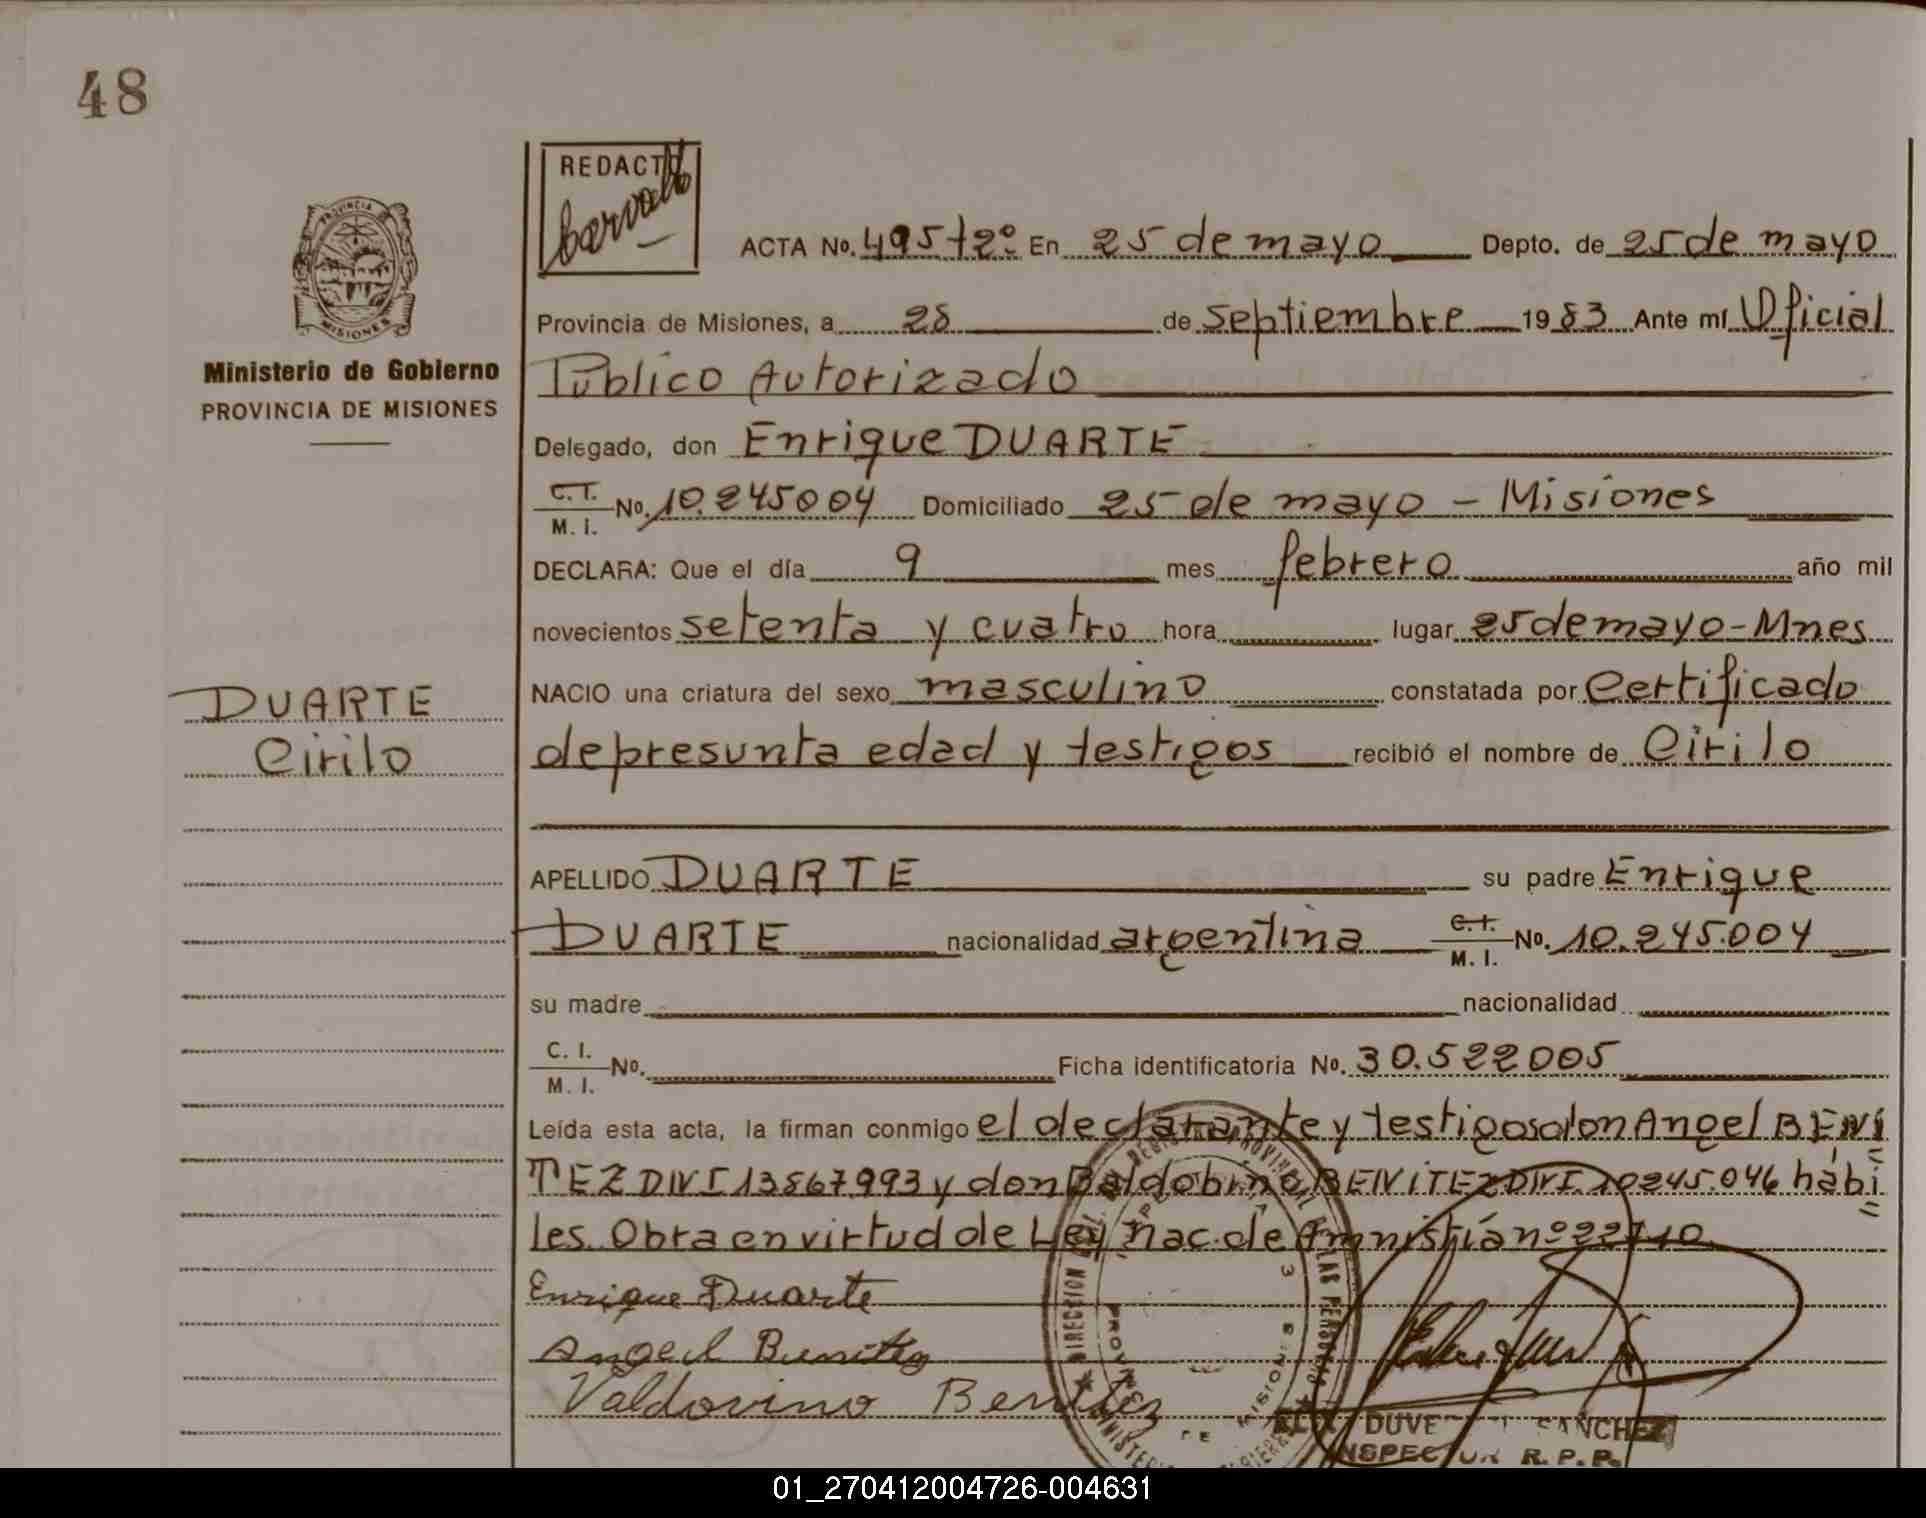 48
REDACTO
PROVINCIA
MISIONES
Ministerio de Gobierno
PROVINCIA DE MISIONES
ACTA No. 495 t 2º En 25 de mayo Depto. de 25 de mayo
Provincia de Misiones, a 28 de septiembre 1983 Ante mí Oficial
Público Autorizado
Delegado, don Enrique DUARTE
C.I. M. I. No. 10.245004 Domiciliado 25 de mayo - Misiones
DECLARA: Que el día 9 mes febrero año mil
novecientos setenta y cuatro hora lugar 25 de mayo - Mnes
NACIO una criatura del sexo masculino constatada por certificado
DUARTE
Cirilo
de presunta edad y testigos recibió el nombre de Cirilo
APELLIDO DUARTE su padre Enrique
DUARTE nacionalidad argentina C.I. M. I. No. 10.245.004
su madre nacionalidad
C. I. M. I. No. Ficha identificatoria No. 30.522005
Leída esta acta, la firman conmigo el declarante y testigos don Angel BENI
TEZ DNI 13867.993 y don Baldobino BENITEZ DNI. 10245.046 hábi
les. Obra en virtud de Ley nac. de Amnistía nº 22710
Enrique Duarte
Angel Benitez
Valdovino Benitez
SANCHEZ
INSPECTOR R. P. P.
01_270412004726-004631